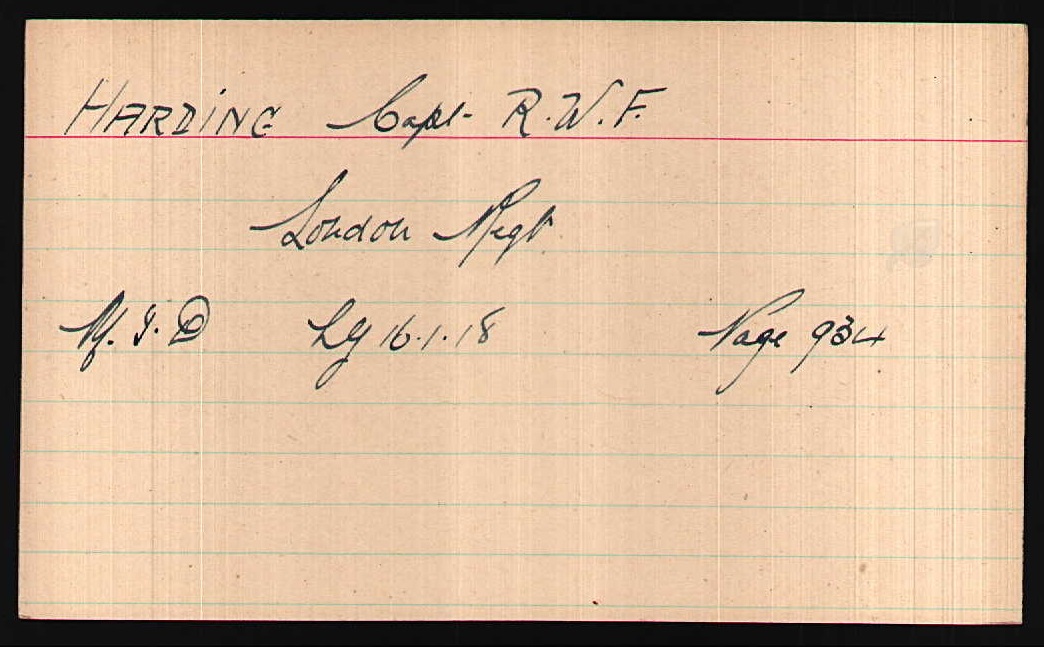 HARDING Capt- R.W.F.
London Regt
M.I.D LG 16.1.18 Page 934